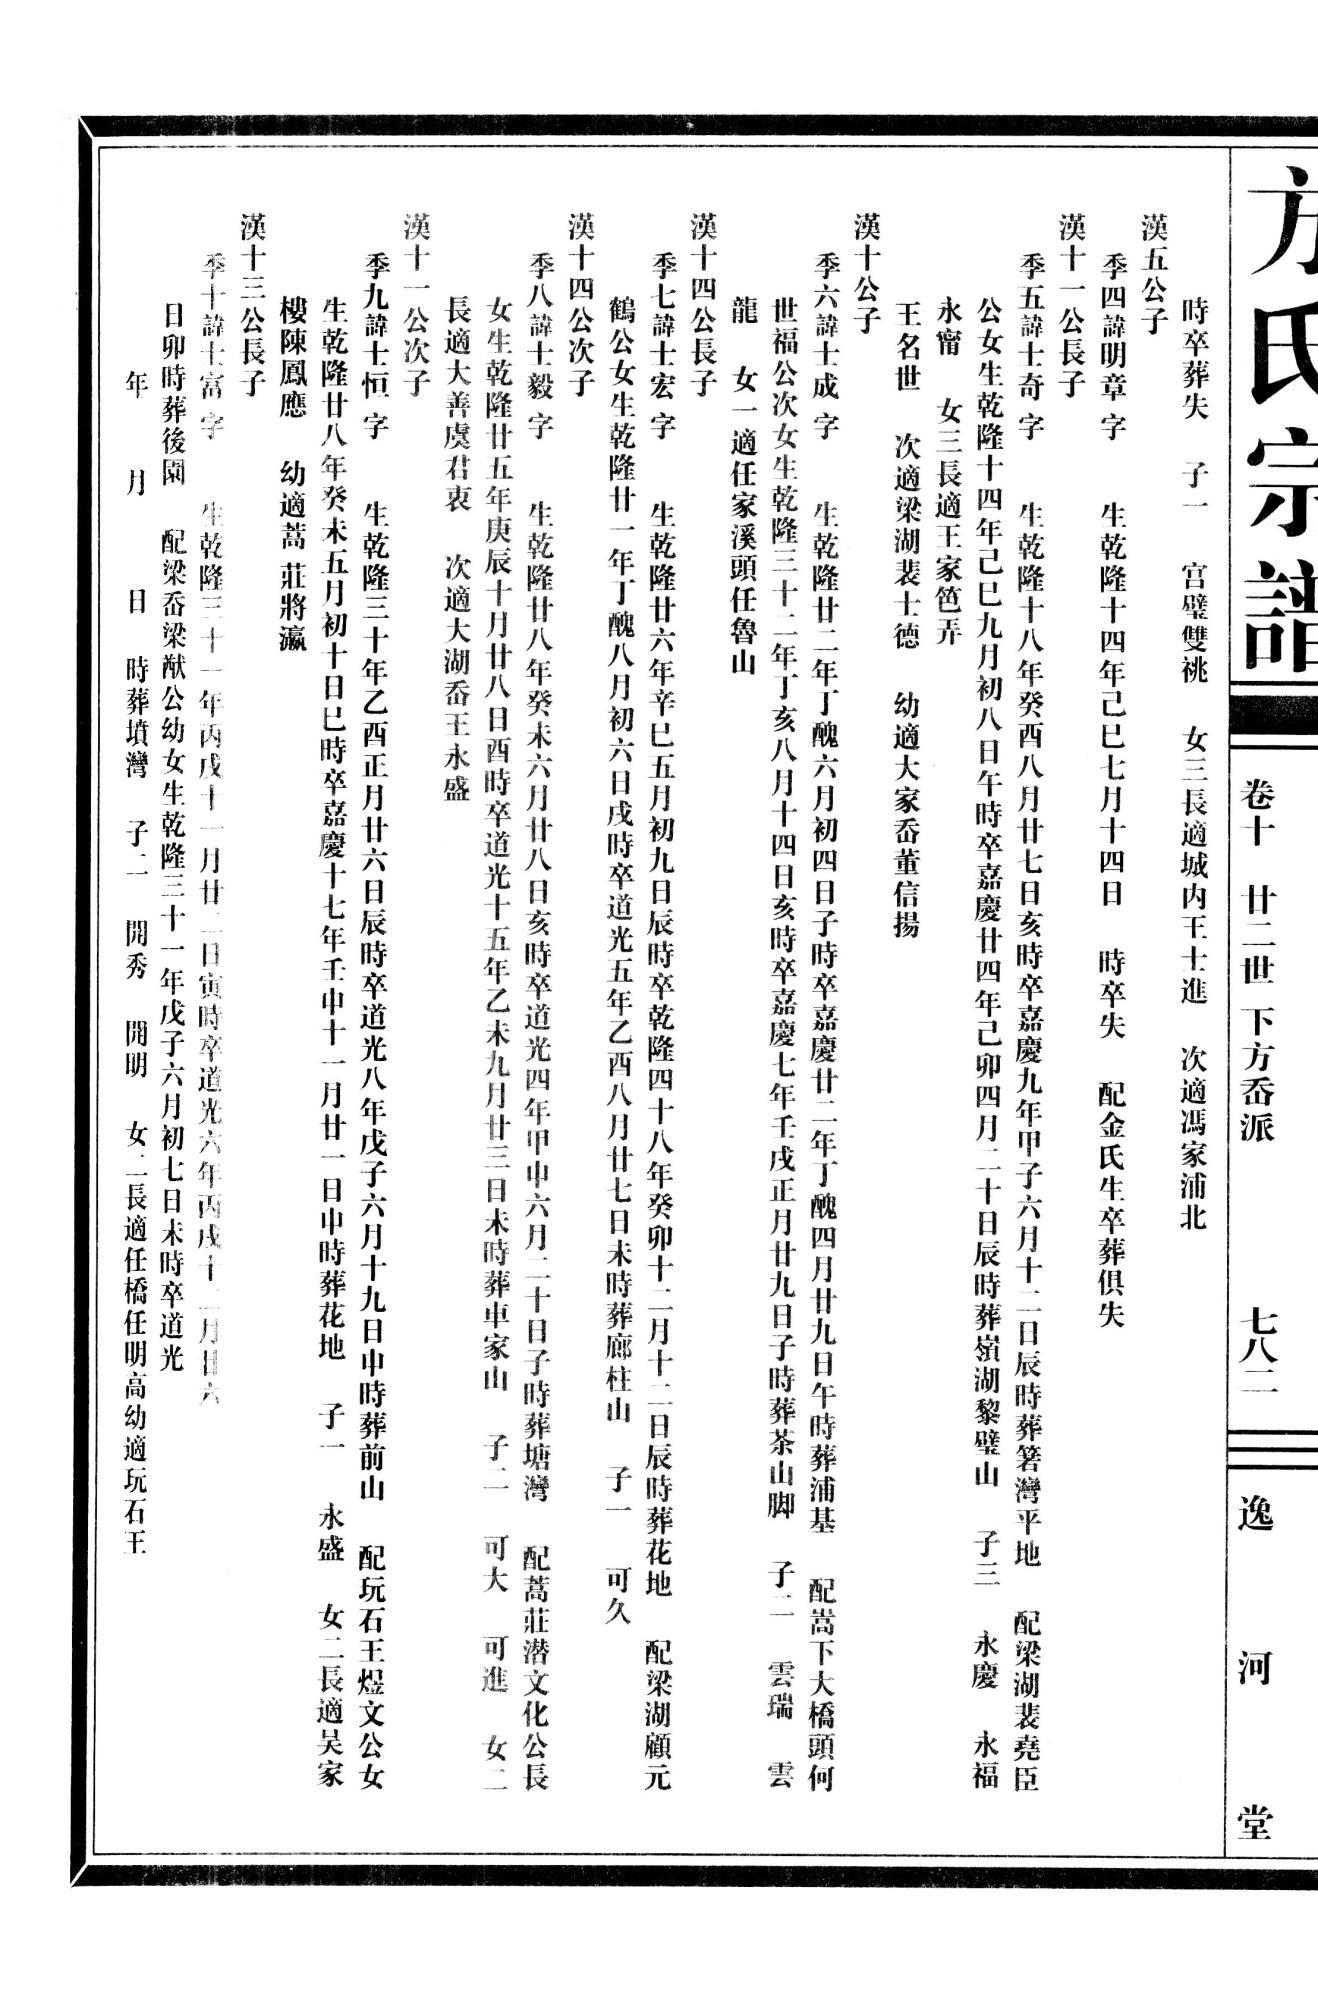 方氏宗譜
卷十 廿二世 下方岙派 七八二
逸河堂
時卒葬失 子一 宫璧雙祧 女三長適城内王士進 次適馮家浦北
漢五公子
季四諱明章字 生乾隆十四年己巳七月十四日 時卒失 配金氏生卒葬俱失
漢十一公長子
季五諱士奇字 生乾隆十八年癸酉八月廿七日亥時卒嘉慶九年甲子六月十二日辰時葬箬灣平地 配梁湖裴堯臣
公女生乾隆十四年己巳九月初八日午時卒嘉慶廿四年己卯四月二十日辰時葬嶺湖黎璧山 子三 永慶 永福
永甯 女三長適王家笆弄
王名世 次適梁湖裴士德 幼適大家岙董信揚
漢十公子
季六諱士成字 生乾隆廿二年丁醜六月初四日子時卒嘉慶廿二年丁醜四月廿九日午時葬浦基 配嵩下大橋頭何
世福公次女生乾隆三十二年丁亥八月十四日亥時卒嘉慶七年壬戌正月廿九日子時葬茶山脚 子二 雲瑞 雲
龍 女一適任家溪頭任魯山
漢十四公長子
季七諱士宏字 生乾隆廿六年辛巳五月初九日辰時卒乾隆四十八年癸卯十二月十二日辰時葬花地 配梁湖顧元
鶴公女生乾隆廿一年丁醜八月初六日戌時卒道光五年乙酉八月廿七日未時葬廊柱山 子一 可久
漢十四公次子
季八諱士毅字 生乾隆廿八年癸未六月廿八日亥時卒道光四年甲申六月二十日子時葬塘灣 配蒿莊潜文化公長
女生乾隆廿五年庚辰十月廿八日酉時卒道光十五年乙未九月廿三日未時葬車家山 子二 可大 可進 女二
長適大善虞君衷 次適大湖岙王永盛
漢十一公次子
季九諱士恒字 生乾隆三十年乙酉正月廿六日辰時卒道光八年戊子六月十九日申時葬前山 配玩石王煜文公女
生乾隆廿八年癸未五月初十日巳時卒嘉慶十七年壬申十一月廿一日申時葬花地 子一 永盛 女二長適吴家
樓陳鳳應 幼適蒿莊將瀛
漢十三公長子
季十諱士富字 生乾隆三十一年丙戌十一月廿二日寅時卒道光六年丙戌十二月廿六
日卯時葬後園 配梁岙梁猷公幼女生乾隆三十一年戊子六月初七日未時卒道光
年 月 日 時葬墳灣 子二 開秀 開明 女二長適任橋任明高幼適玩石王